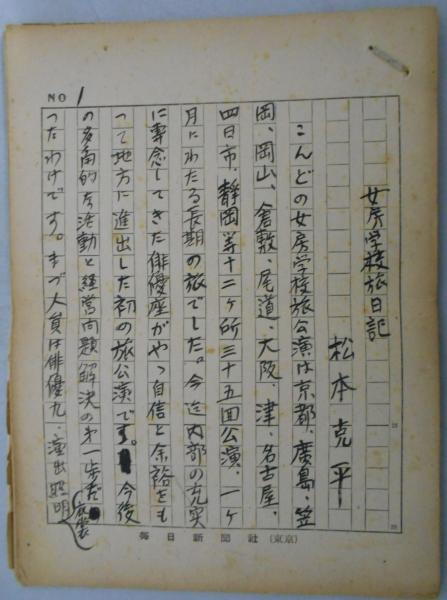 NO 1
女房学校旅日記
松本克平
こんどの女房学校旅公演は京都、廣島、笠
岡、岡山、倉敷、尾道、大阪、津、名古屋、
四日市、静岡等十二ヶ所三十五回公演、一ヶ
月にわたる長期の旅でした。今迄内部の充実
に専念してきた俳優座がやっ自信と余裕をも
って地方に進出した初の旅公演です。今後
の多角的な活動と経営問題解決の第一歩だ
ったわけです。まづ人員は俳優九、演出照明
衣裳
毎日新聞社(東京)